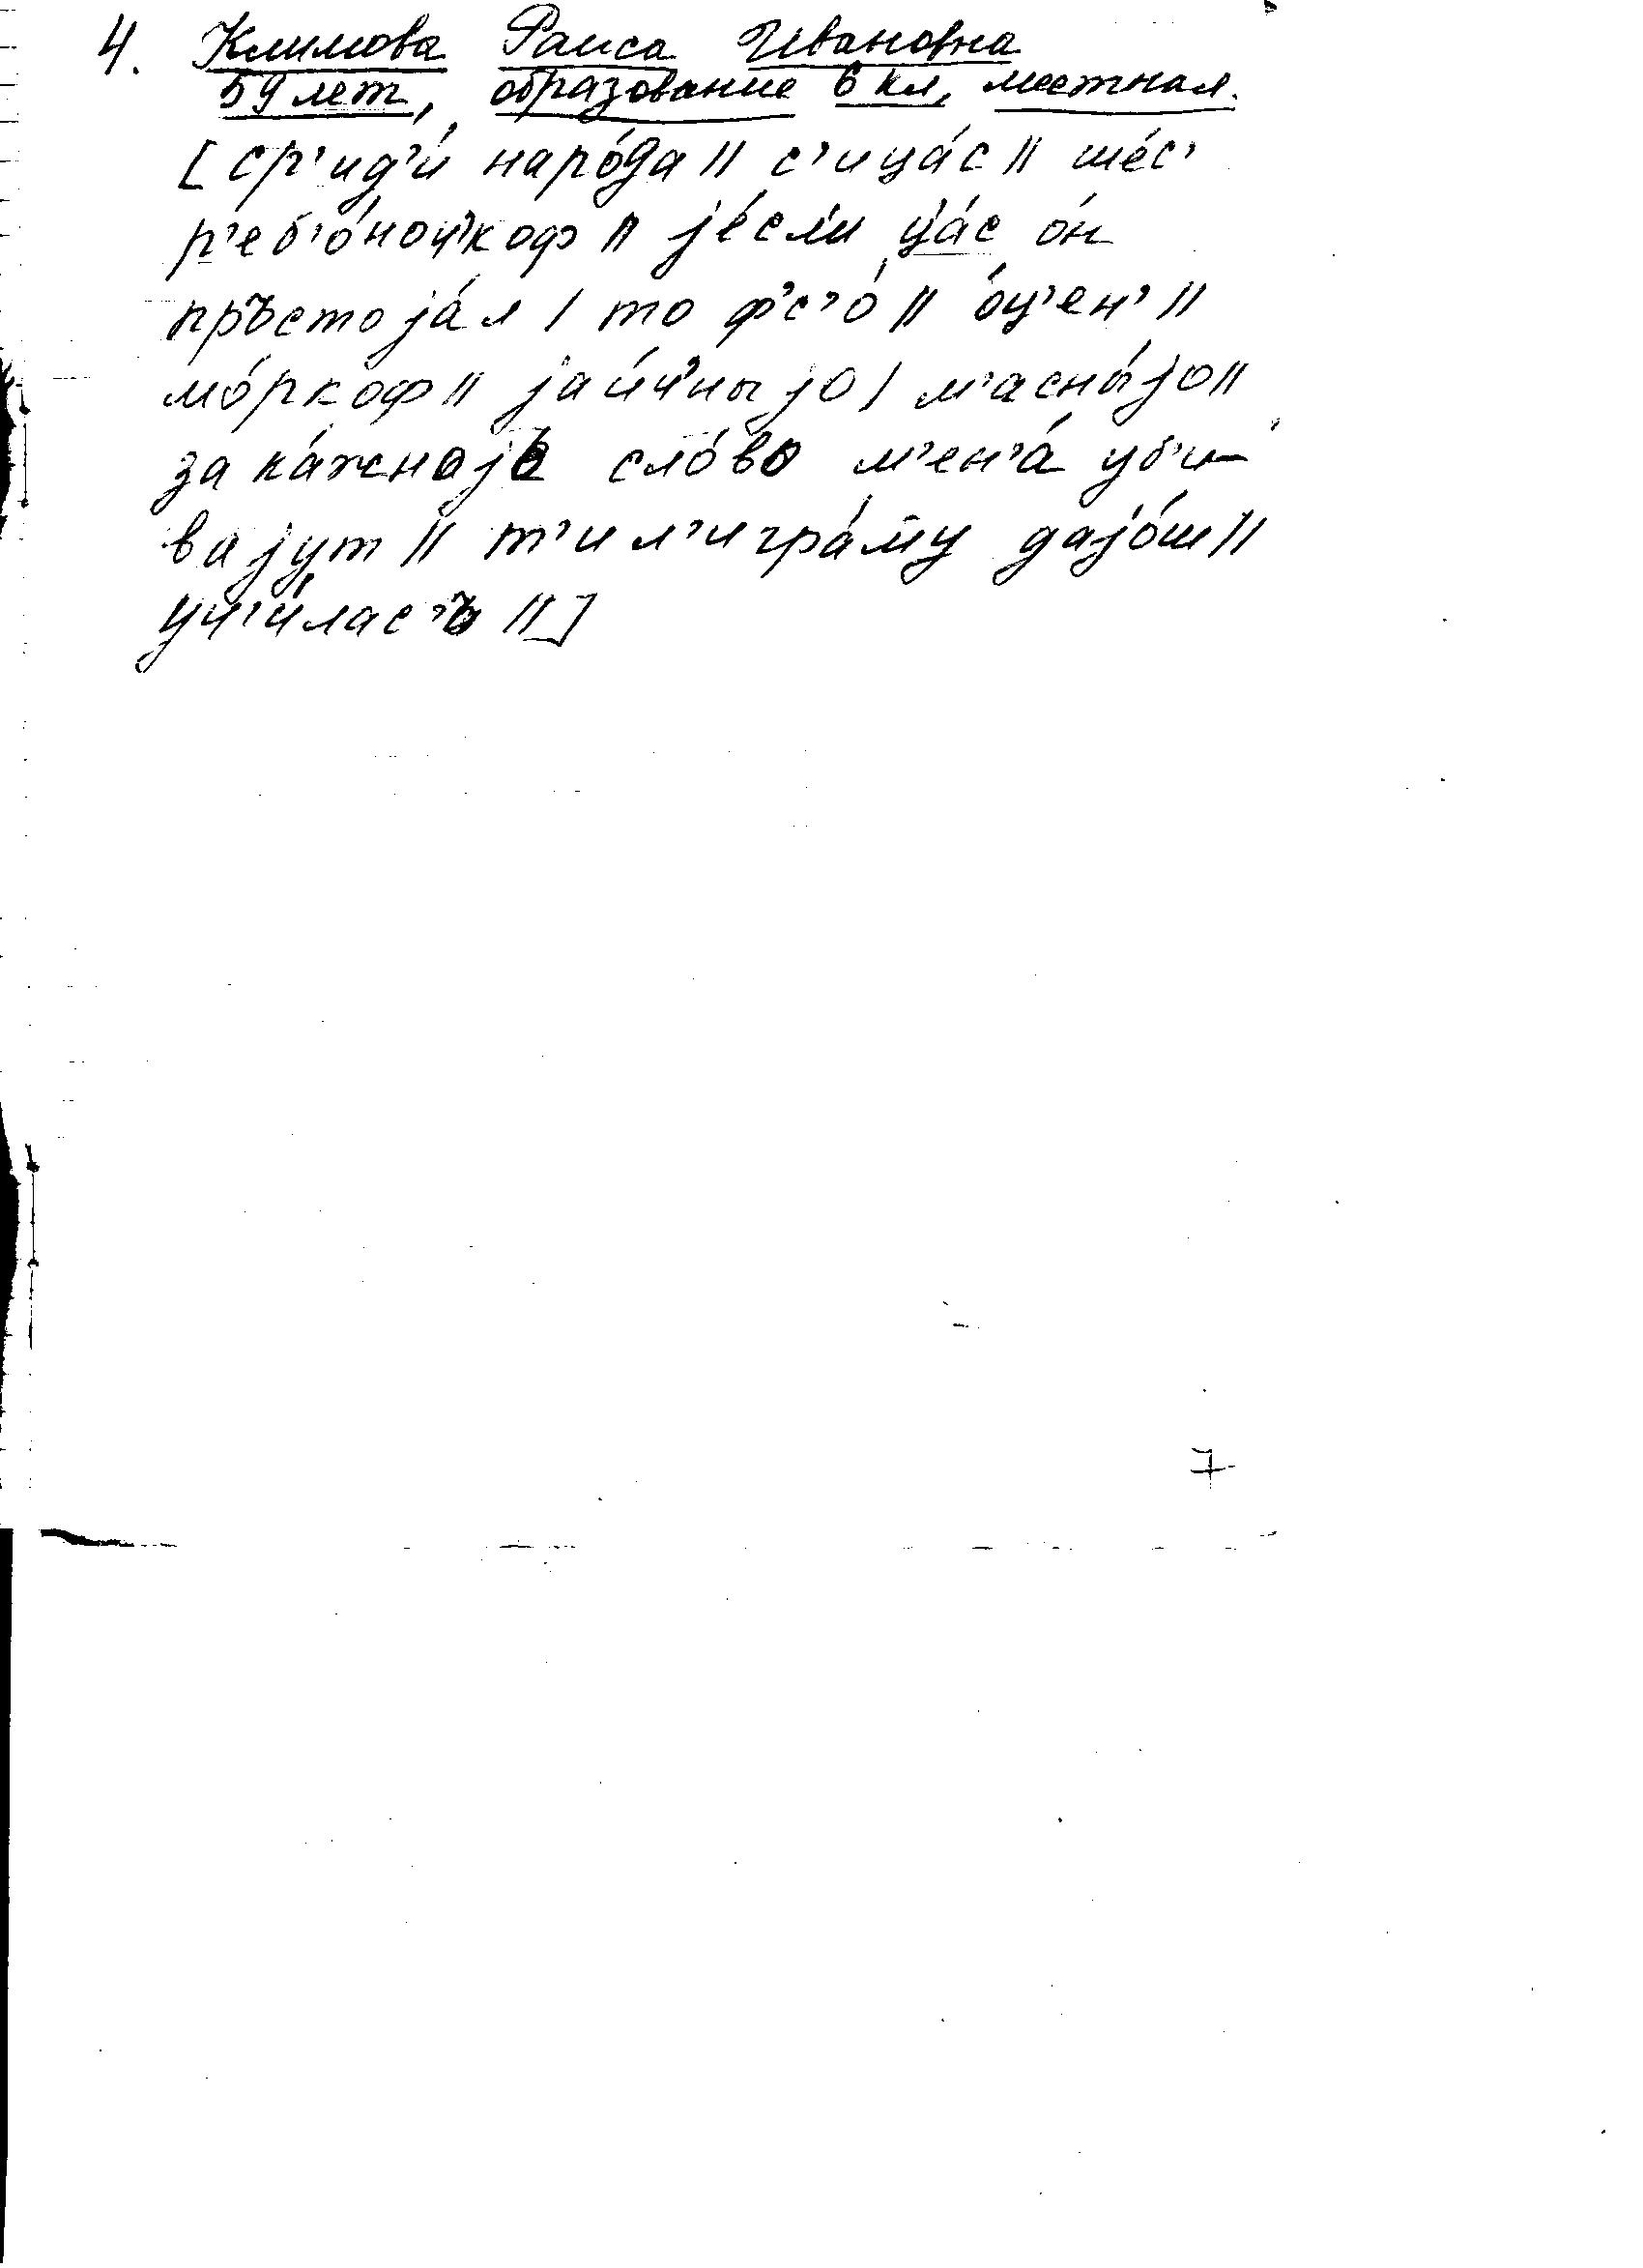 4. Климова Раиса Ивановна
59 лет, образование 6 кл, местная.
[ср'ид'и́ наро́да || с'ица́с || ше́с'
р'еб'о́ноч'коф || jе́сл'и ца́с о́н
пръстоjа́л | то ф'с'о́ || о́ц'ен' ||
мо́ркоф || jаи́ч'ныjо | м'асны́jо ||
за ка́жноjо сло́во м'ен'а́ уб'и-
ваjут || т'ил'игра́м̄у даjо́ш ||
уч'и́лас'ъ ||]
7